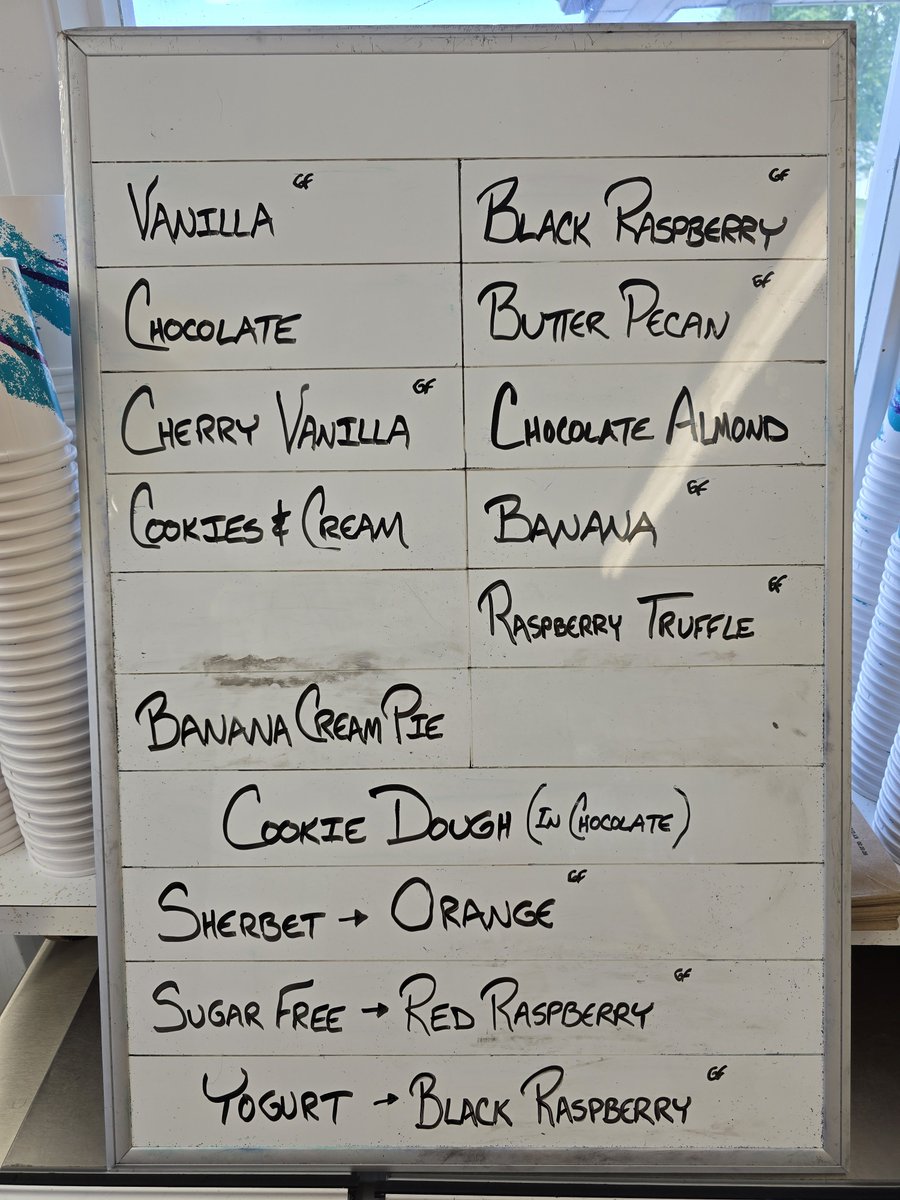 VANILLA GF
BLACK RASPBERRY GF
CHOCOLATE
BUTTER PECAN GF
CHERRY VANILLA GF
CHOCOLATE ALMOND
COOKIES & CREAM
BANANA GF
RASPBERRY TRUFFLE GF
BANANA CREAM PIE
COOKIE DOUGH (IN CHOCOLATE)
SHERBET → ORANGE GF
SUGAR FREE → RED RASPBERRY GF
YOGURT → BLACK RASPBERRY GF